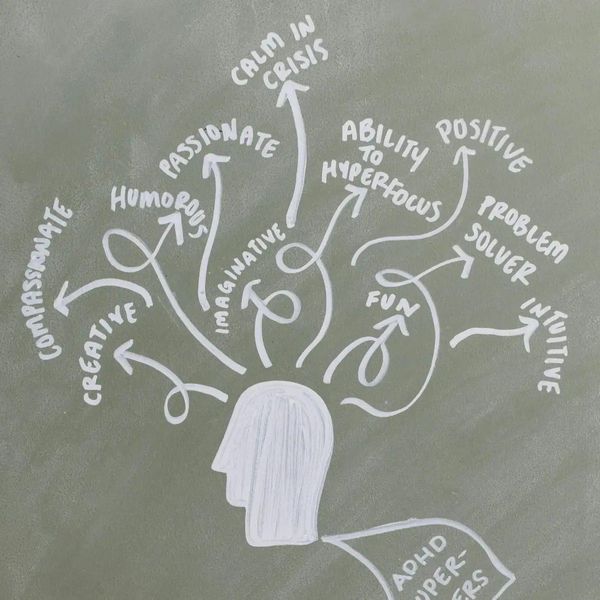 CALM IN
CRISIS
PASSIONATE
ABILITY
TO
HYPERFOCUS
POSITIVE
HUMOROUS
COMPASSIONATE
IMAGINATIVE
PROBLEM
SOLVER
CREATIVE
FUN
INTUITIVE
ADHD